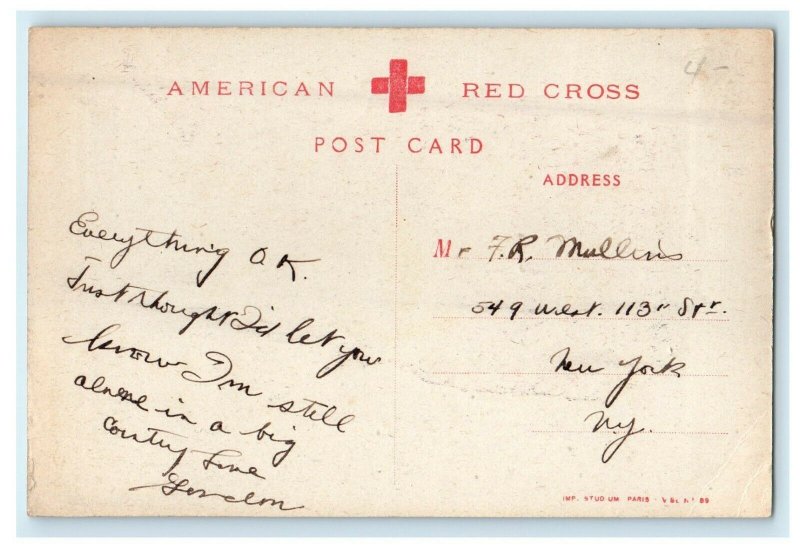 4-
AMERICAN RED CROSS
POST CARD
ADDRESS
Everything O.K.
Just thought I'd let you
know I'm still
alone in a big
Love
Gordon
Mr F.R. Mullins
549 West. 113" Str.
New York
N.y.
IMP. STUDIUM PARIS
89